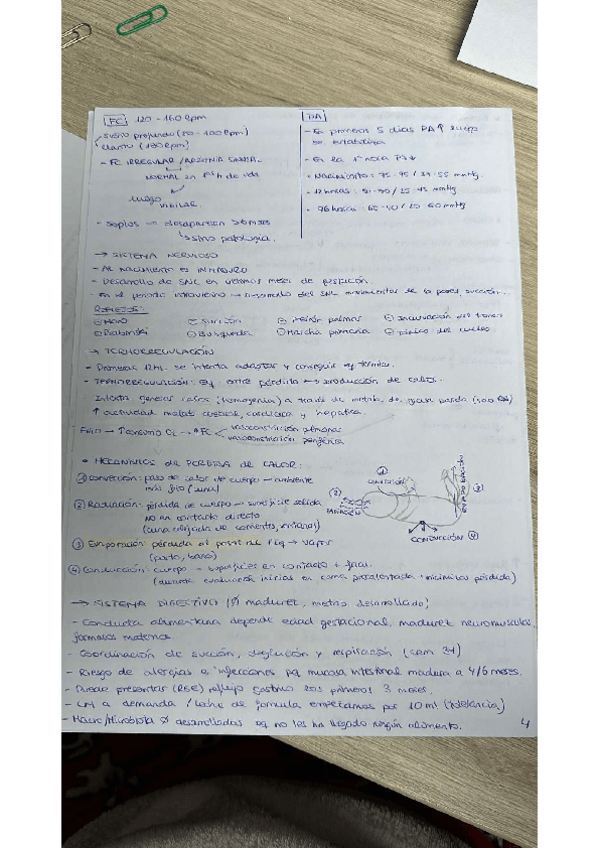 FC 120 - 160 lpm
sueño profundo (80 - 100 lpm)
llanto (180 lpm)
- FC IRREGULAR / ARRITMIA SANA.
NORMAL en 1ª h de vida
luego
VIGILAR.
- Soplos → desaparecen 6 meses
sino patología.
PA
- En primeros 5 días PA ↑ luego
se estabiliza
- En la 1ª hora PA ↓
- Nacimiento:
- 12 horas:
- 96 horas: mmHg
→ SISTEMA NERVIOSO
- Al nacimiento es INMADURO
- Desarrollo de SNC en últimos meses de gestación.
- En el periodo intrauterino → desarrollo del SNC movimientos de la pared, succión...
REFLEJOS:
Moro
Succión
Presión palmar
Incurvación del tronco
Babinski
Búsqueda
Marcha primaria
tónico del cuello
→ TERMORREGULACIÓN
- Primeras 12H. se intenta adaptar y conseguir eq térmico.
- TERMORREGULACIÓN: eq. entre pérdida ↔ producción de calor.
Intenta generar calor (homogenia) a través de metab. de grasa parda
↑ actividad metab cerebral, cardíaca y hepática.
FRIO → ↑ consumo O₂ → ↑ FC
vasoconstricción pulmonar
vasoconstricción periférica
• MECANISMOS DE PERDIDA DE CALOR:
① Convección: paso de calor de cuerpo → ambiente
más frío
② Radiación: pérdida de cuerpo → superficie sólida
NO en contacto directo
(cuna alejada de corrientes, ventanas)
③ Evaporación: pérdida al pasar de líq → vapor
(parto, baño)
④ Conducción: cuerpo → superficies en contacto + frías.
(durante evaluación inicial en cama precalentada + minimiza pérdida)
①
CONVECCIÓN
②
RADIACIÓN
EVAPORACIÓN
③
CONDUCCIÓN ④
→ SISTEMA DIGESTIVO (Ø madurez, metab desarrollado)
- Conducta alimentaria depende edad gestacional, madurez neuromuscular,
fármacos maternos
- Coordinación de succión, deglución y respiración (sem 34)
- Riesgo de alergias e infecciones pq mucosa intestinal madura a 4/6 meses.
- Puede presentar (RGE) reflujo gástrico los primeros 3 meses.
- LM a demanda / leche de formula empezamos por 10 ml (tolerancia)
- Macro/Microbiota Ø desarrolladas pq no les ha llegado ningún alimento.
4